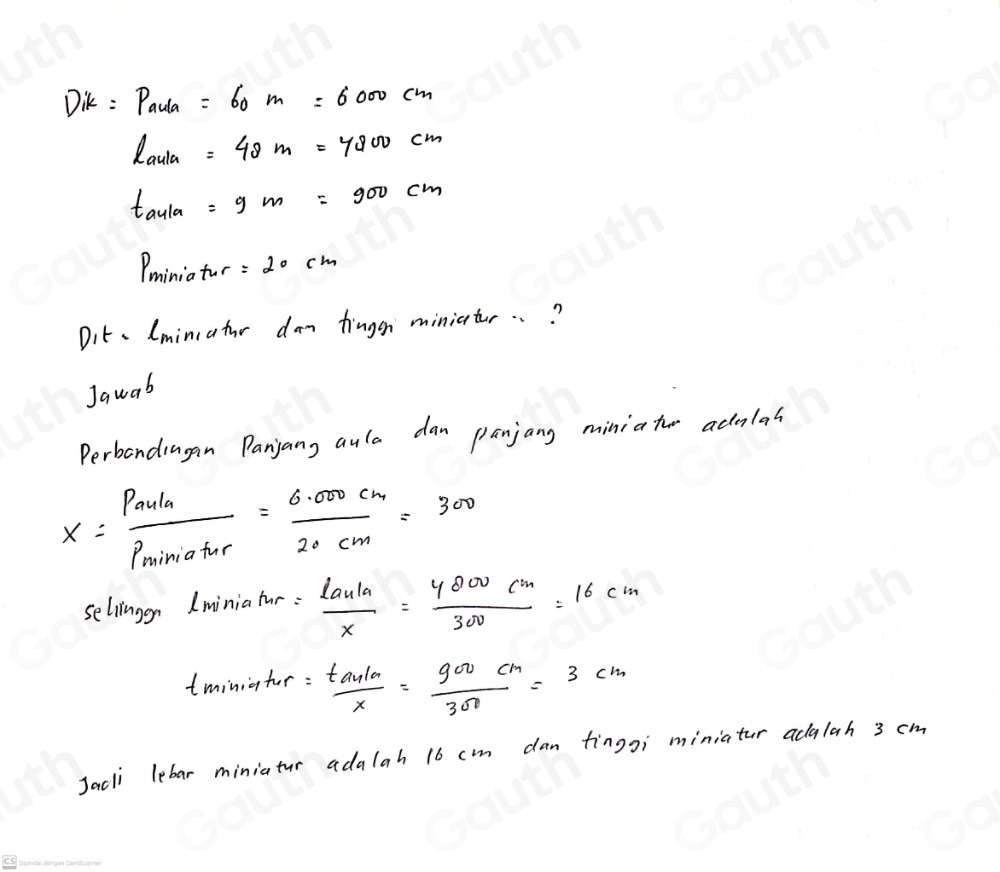 Dik : Paula = 60 m = 6000 cm
laula = 48 m = 4800 cm
taula = 9 m = 900 cm
Pminiatur = 20 cm
Dit. lminiatur dan tinggi miniatur .. ?
Jawab
Perbandingan Panjang aula dan panjang miniatur adalah
X = Paula / Pminiatur = 6.000 cm / 20 cm = 300
sehingga lminiatur = laula / x = 4800 cm / 300 = 16 cm
tminiatur = taula / x = 900 cm / 300 = 3 cm
Jadi lebar miniatur adalah 16 cm dan tinggi miniatur adalah 3 cm
CS Dipindai dengan CamScanner
Gauth